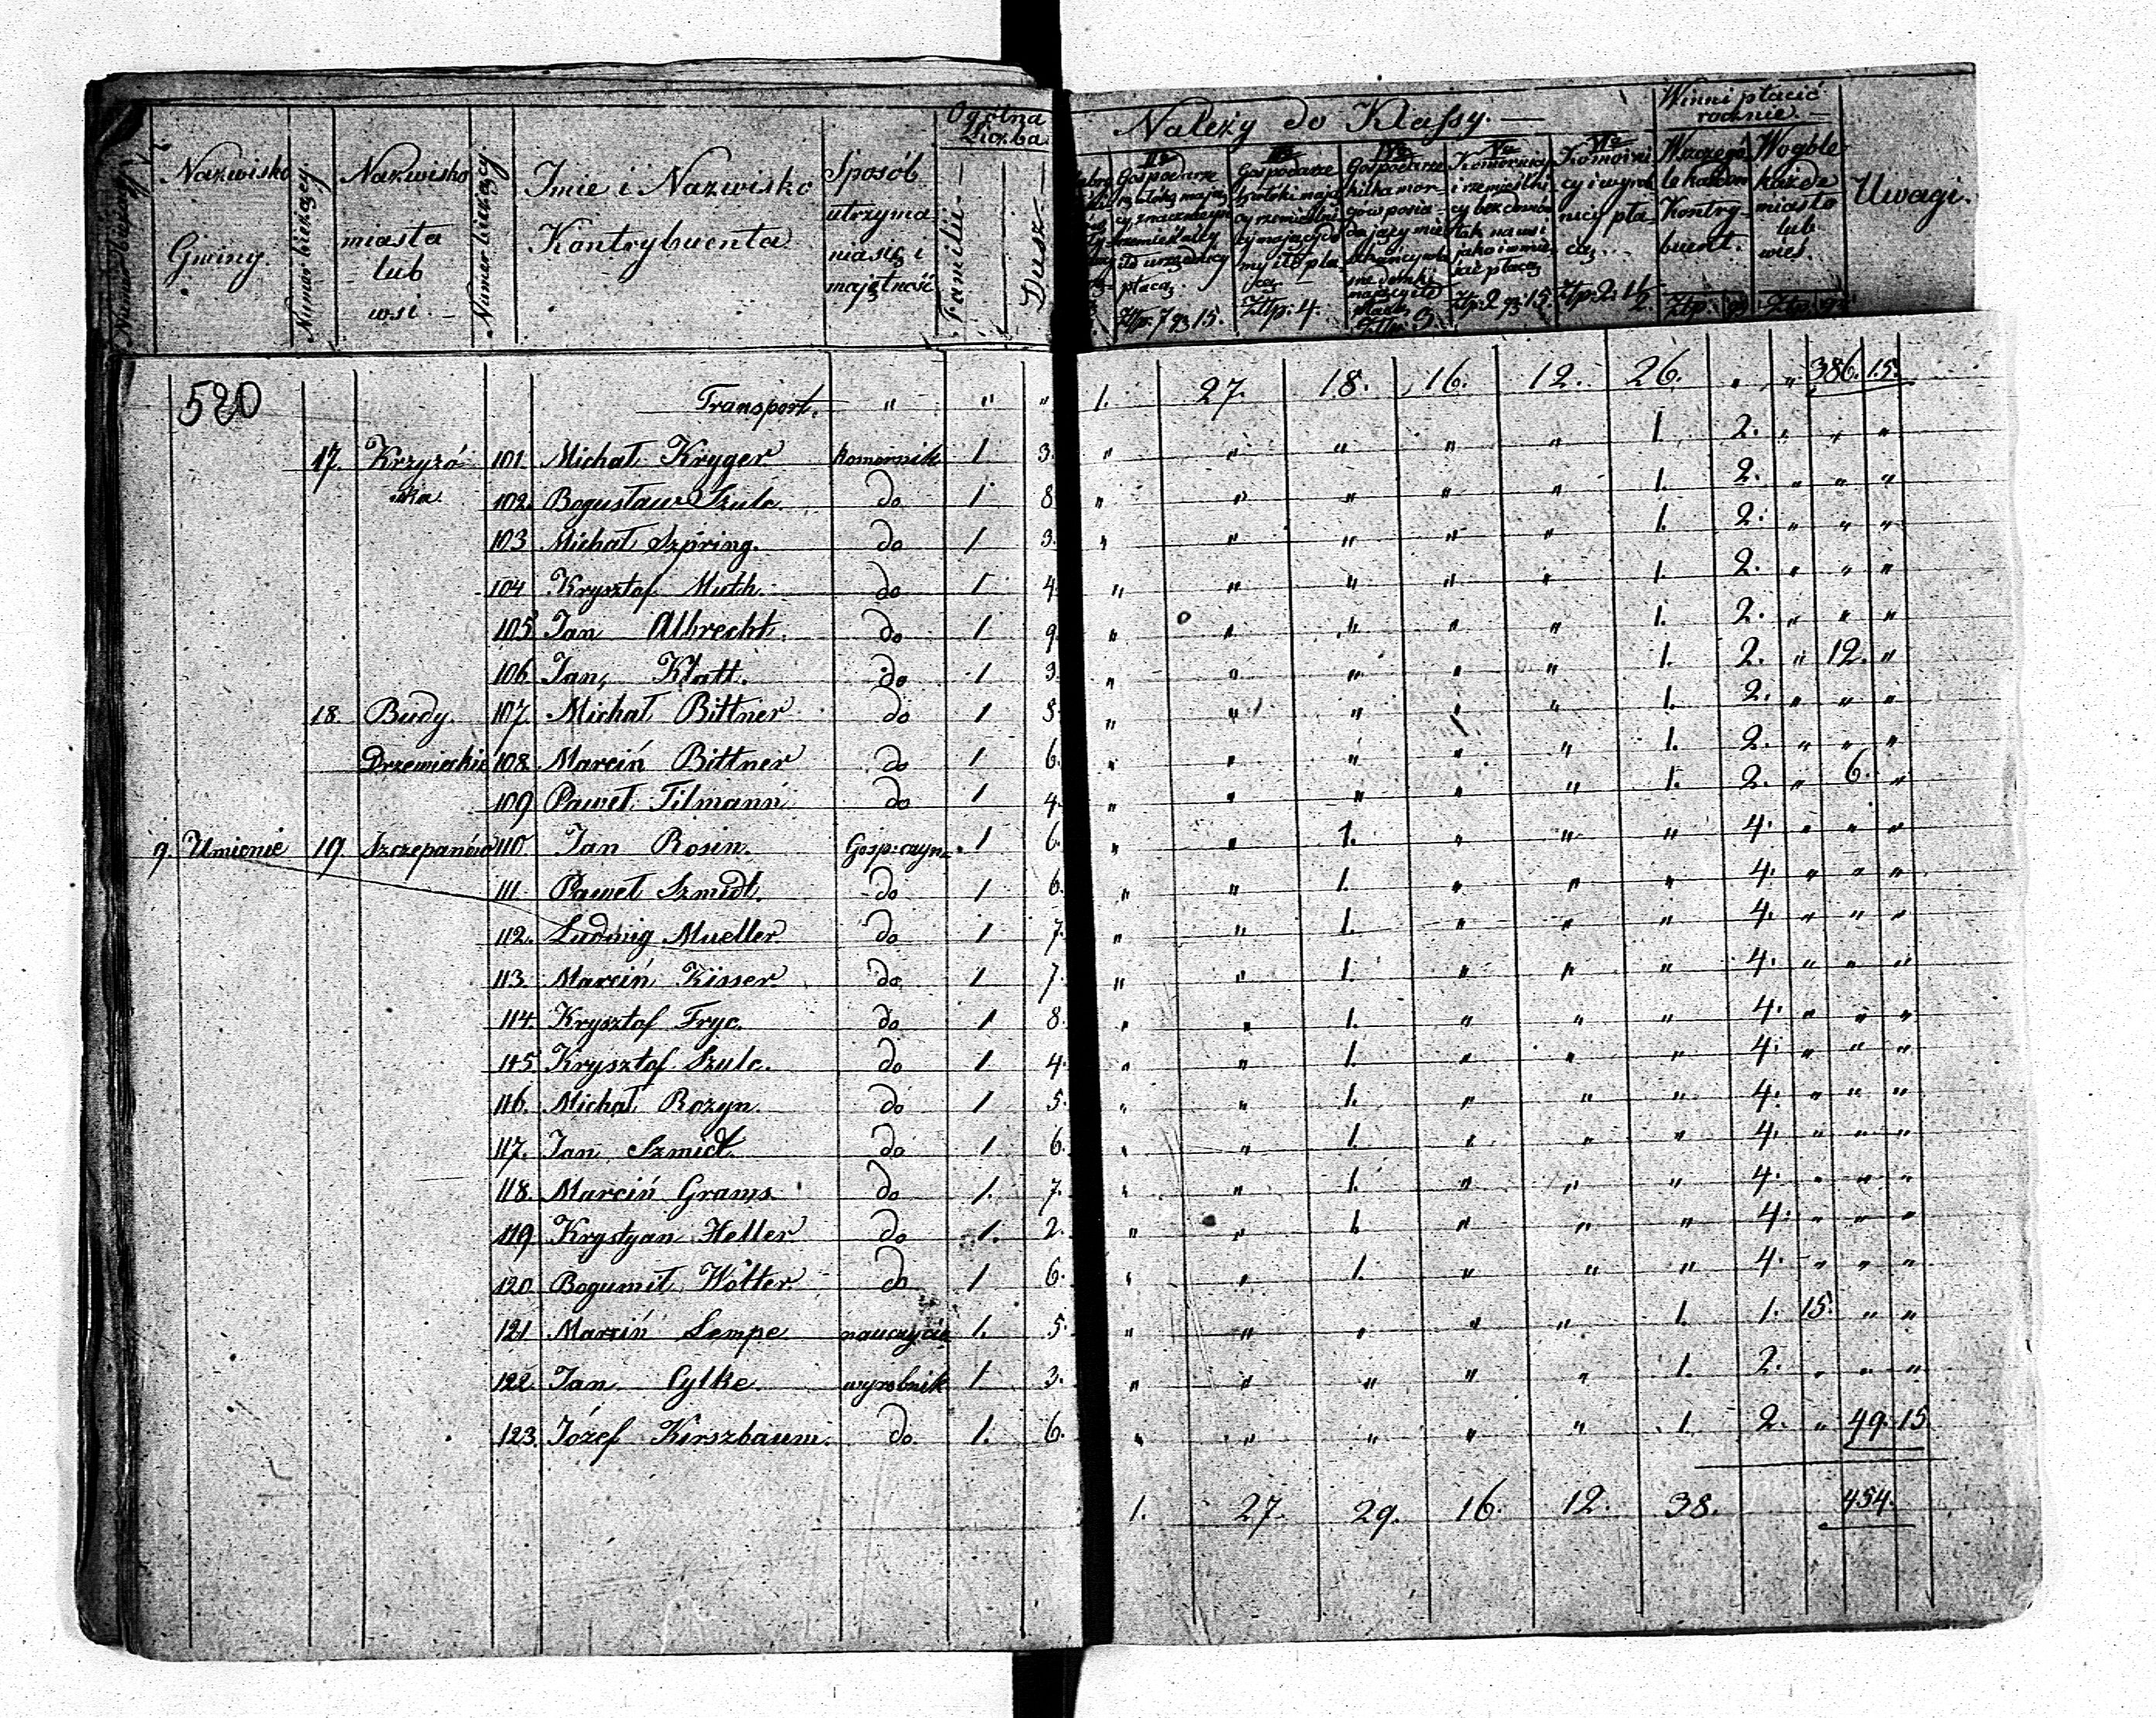 Nazwisko Gminy.
Numer bieżący
Nazwisko miasta lub wsi.
Numer bieżący
Imie i Nazwisko Kontrybuenta
Sposób utrzymania się i majętność
Ogólna Liczba
Familii
Dusz
Należy do Klassy.
IIa Gospodarze
płacą Ztp: 7 gr 15.
IIIa Gospodarze
Ztp: 4.
IVa Gospodarze kilka morgów
Ztp: 3.
Va Komornicy i rzemieślnicy bez domów tak na wsi jako i w mieście płacą
Ztp: 2 gr: 15.
VIa Komornicy i wyrobnicy płacą
Ztp: 2.
Winni płacić rocznie
Kontrybuent. Ztp: gr
Wogóle każde miasto lub wieś. Ztp: gr:
Uwagi.
520 Transport. " " " 1. 27. 18. 16. 12. 26. " " 386. 15.
17. Krzyżó- 101. Michał Kryger komornik 1. 3. " " " " " 1. 2. " " "
wka 102. Bogusław Szulc. do 1 8 " " " " " 1. 2. " " "
103 Michał Szpring. do 1 3. " " " " " 1. 2. " " "
104 Krysztof Muth. do 1 4. " " " " " 1. 2. " " "
105 Jan Albrecht. do 1 9. " " " " " 1. 2. " " "
106 Jan, Klatt. do 1 3. " " " " " 1. 2. " 12. "
18. Budy 107. Michał Bittner do 1 5. " " " " " 1. 2. " " "
Drzewieckie 108. Marciń Bittner do 1 6. " " " " " 1. 2. " " "
109 Paweł Tilmann do 1 4. " " " " " 1. 2. " 6. "
9. Umienie 19. Szczepanów 110. Jan Rosin. Gosp: czyn: 1 6. " " 1. " " " 4. " " "
111. Paweł Szmidt. do 1 6. " " 1. " " " 4. " " "
112. Ludwig Mueller. do 1 7. " " 1. " " " 4. " " "
113. Marciń Kisser do 1 7. " " 1. " " " 4. " " "
114. Krysztof Fryc. do 1 8. " " 1. " " " 4. " " "
115 Krysztof Szulc. do 1 4. " " 1. " " " 4. " " "
116. Michał Rozyn. do 1 5. " " 1. " " " 4. " " "
117. Jan Szmidt. do 1. 6. " " 1. " " " 4. " " "
118. Marciń Grams. do 1. 7. " " 1. " " " 4. " " "
119 Krystyan Heller do 1. 2. " " 1. " " " 4. " " "
120. Bogumił Wötter. do 1 6. " " 1. " " " 4. " " "
121 Marciń Lempe nauczyciel 1. 5. " " " " " 1. 1. 15. " "
122 Jan Cylke wyrobnik 1. 3. " " " " " 1. 2. " " "
123. Józef Kirszbaum. do. 1. 6. " " " " " 1. 2. " 49. 15
1. 27. 29. 16. 12. 38. 454.